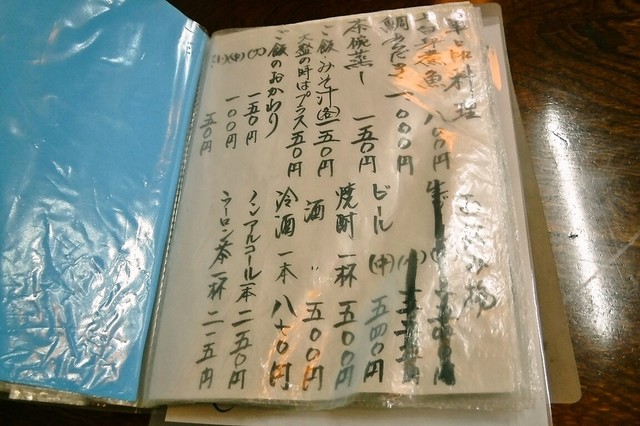 単品料理
煮魚 八〇〇円
鯛あらだき 一、〇〇〇円
茶碗蒸し 一五〇円
ご飯・みそ汁 一五〇円
大盛の時はプラス五〇円
ご飯のおかわり
(大) 一五〇円
(中) 一〇〇円
(小) 五〇円
お飲み物
ビール (中) 五四〇円
焼酎 一杯 五〇〇円
酒 〃 五〇〇円
冷酒 一本 八七〇円
ノンアルコール一本 二五〇円
ウーロン茶 一杯 二一五円